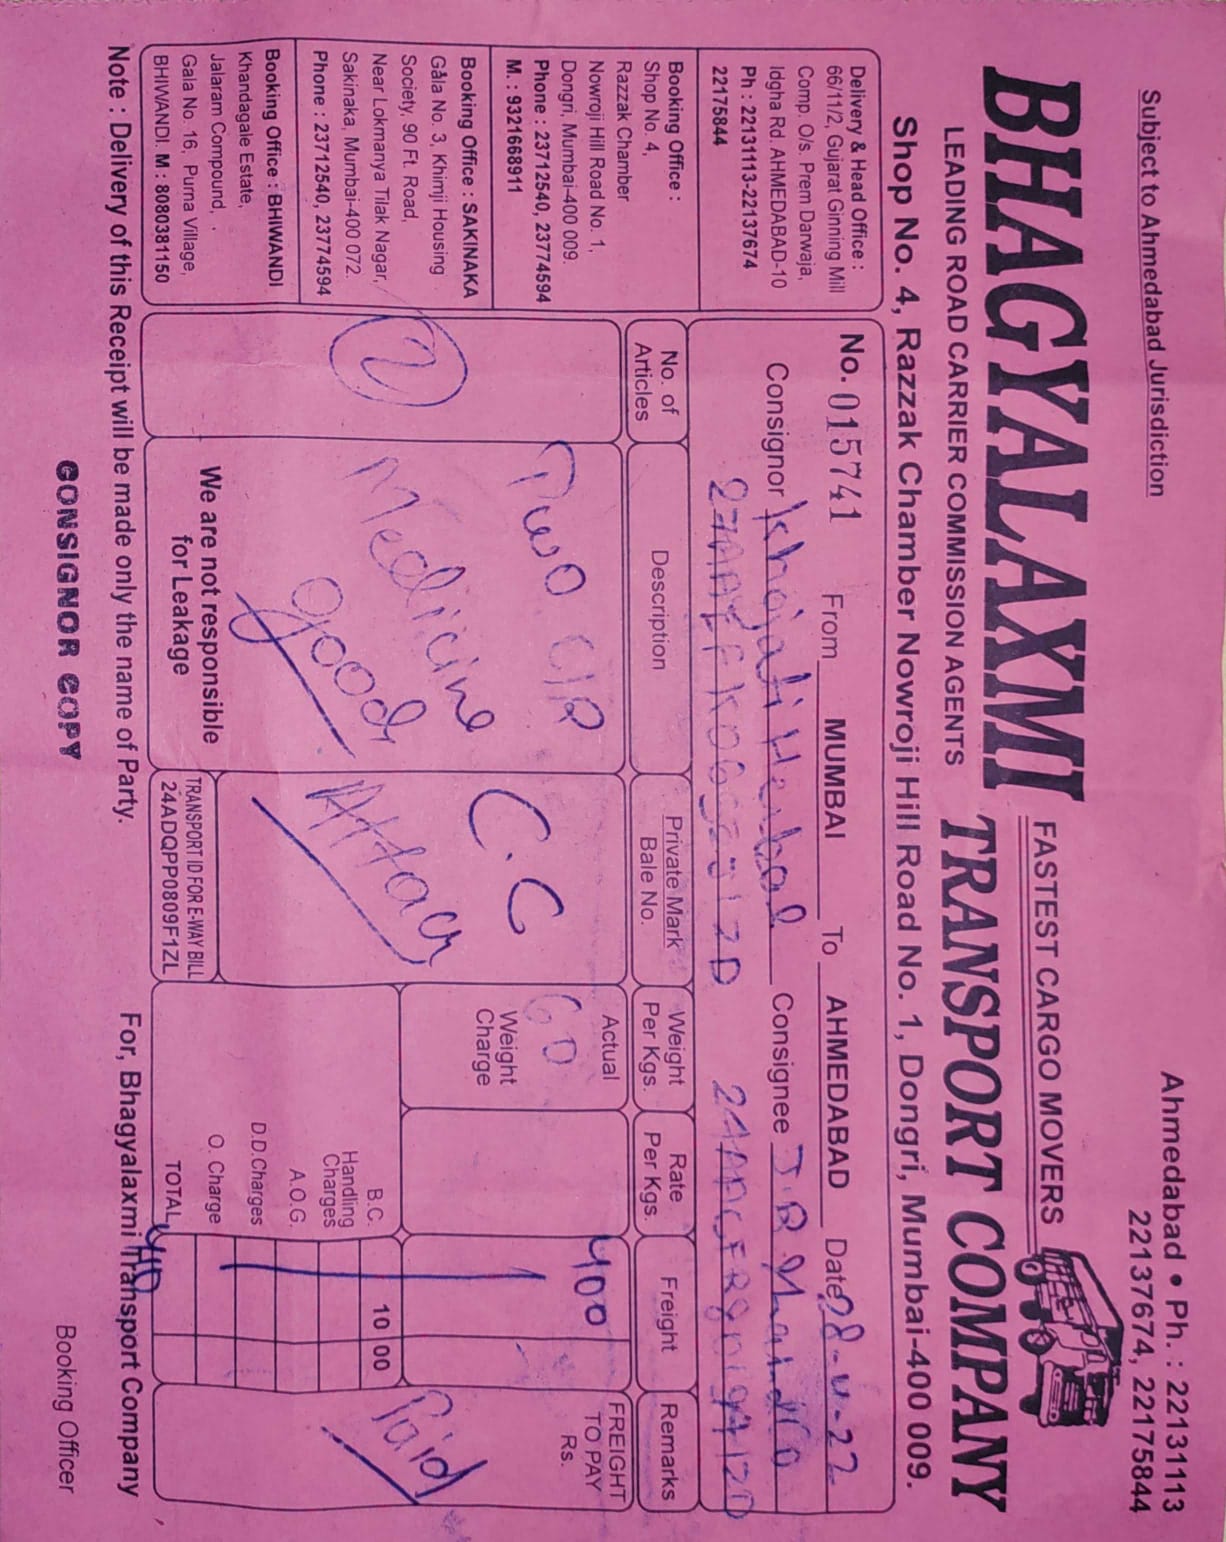 Subject to Ahmedabad Jurisdiction
Ahmedabad • Ph. : 22131113
22137674, 22175844
BHAGYALAXMI
FASTEST CARGO MOVERS
LEADING ROAD CARRIER COMMISSION AGENTS
TRANSPORT COMPANY
Shop No. 4, Razzak Chamber Nowroji Hill Road No. 1, Dongri, Mumbai-400 009.
Delivery & Head Office :
66/11/2, Gujarat Ginning Mill
Comp. O/s. Prem Darwaja,
Idgha Rd. AHMEDABAD-10
Ph : 22131113-22137674
22175844
Booking Office :
Shop No. 4,
Razzak Chamber
Nowroji Hill Road No. 1,
Dongri, Mumbai-400 009.
Phone : 23712540, 23774594
M. : 9321668911
Booking Office : SAKINAKA
Gala No. 3, Khimji Housing
Society, 90 Ft. Road,
Near Lokmanya Tilak Nagar,
Sakinaka, Mumbai-400 072.
Phone : 23712540, 23774594
Booking Office : BHIWANDI
Khandagale Estate,
Jalaram Compound, ,
Gala No. 16, Purna Village,
BHIWANDI. M : 8080381150
No. 015741 From MUMBAI To AHMEDABAD Date
Consignor Herbal Consignee J.R.
No. of Articles
Description
Private Mark
Bale No.
Weight Per Kgs.
Rate Per Kgs.
Freight
Remarks
2
Two
Medicine
good
C.C
Attar
Actual
60
Weight Charge
400
FREIGHT TO PAY Rs.
Paid
B.C. 10 00
Handling Charges
A.O.G.
D.D.Charges
O. Charge
TOTAL 410
We are not responsible for Leakage
TRANSPORT ID FOR E-WAY BILL
24ADQPP0809F1ZL
Note : Delivery of this Receipt will be made only the name of Party.
For, Bhagyalaxmi Transport Company
CONSIGNOR COPY
Booking Officer